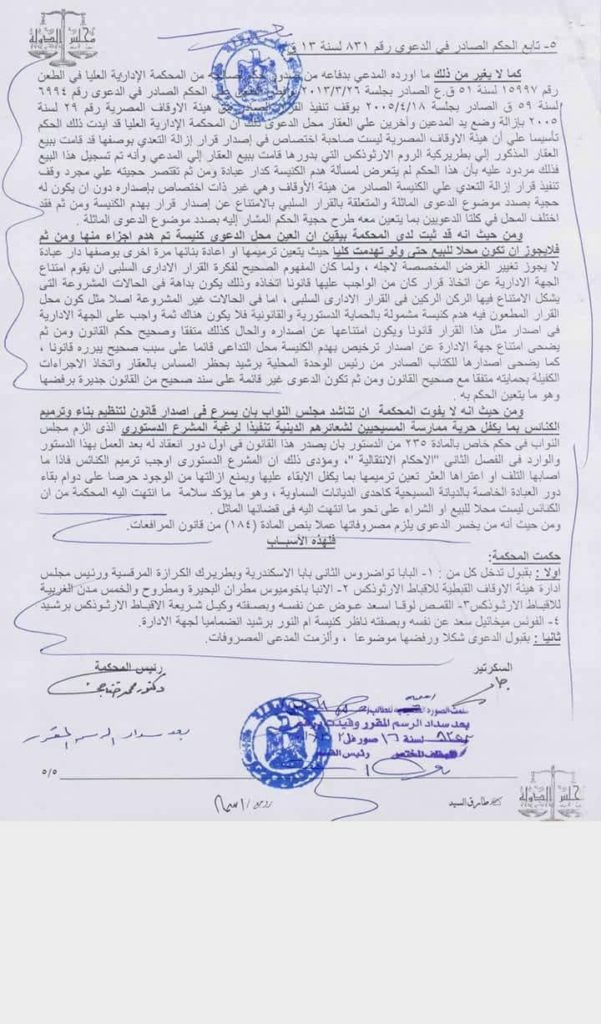 مجلس الدولة
٥- تابع الحكم الصادر في الدعوى رقم ٨٣١ لسنة ١٣ ق
كما لا يغير من ذلك ما اورده المدعي بدفاعه من صدور حكم من المحكمة الإدارية العليا في الطعن
رقم ١٥٩٩٧ لسنة ٥١ ق.ع الصادر بجلسة ٢٠١٣/٣/٢٦ الحكم الصادر في الدعوى رقم ٦٩٩٤
لسنة ٥٩ ق الصادر بجلسة ٢٠٠٥/٤/١٨ بوقف تنفيذ القرار الصادر من هيئة الاوقاف المصرية رقم ٢٩ لسنة
٢٠٠٥ بإزالة وضع يد المدعين وآخرين علي العقار محل الدعوى ذلك أن المحكمة الإدارية العليا قد ايدت ذلك الحكم
تأسيسا علي أن هيئة الاوقاف المصرية ليست صاحبة اختصاص في إصدار قرار إزالة التعدي بوصفها قد قامت ببيع
العقار المذكور إلي بطريركية الروم الارثوذكس التي بدورها قامت ببيع العقار إلي المدعي وأنه تم تسجيل هذا البيع
فذلك مردود عليه بأن هذا الحكم لم يتعرض لمسألة هدم الكنيسة كدار عبادة ومن ثم تقتصر حجيته علي مجرد وقف
تنفيذ قرار إزالة التعدي علي الكنيسة الصادر من هيئة الأوقاف وهي غير ذات اختصاص بإصداره دون ان يكون له
حجية بصدد موضوع الدعوى الماثلة والمتعلقة بالقرار السلبي بالامتناع عن إصدار قرار بهدم الكنيسة ومن ثم فقد
اختلف المحل في كلتا الدعويين بما يتعين معه طرح حجية الحكم المشار إليه بصدد موضوع الدعوى الماثلة .
ومن حيث انه قد ثبت لدي المحكمة بيقين ان العين محل الدعوى كنيسة تم هدم اجزاء منها ومن ثم
فلايجوز ان تكون محلا للبيع حتى ولو تهدمت كليا حيث يتعين ترميمها او اعادة بنائها مرة اخرى بوصفها دار عبادة
لا يجوز تغيير الغرض المخصصة لاجله ، ولما كان المفهوم الصحيح لفكرة القرار الادارى السلبى ان يقوم امتناع
الجهة الادارية عن اتخاذ قرار كان من الواجب عليها قانونا اتخاذه وذلك يكون بداهة فى الحالات المشروعة التى
يشكل الامتناع فيها الركن الركين فى القرار الادارى السلبى ، اما فى الحالات غير المشروعة اصلا مثل كون محل
القرار المطعون فيه هدم كنيسة مشمولة بالحماية الدستورية والقانونية فلا يكون هناك ثمة واجب على الجهة الادارية
فى اصدار مثل هذا القرار قانونا ويكون امتناعها عن اصداره والحال كذلك متفقا وصحيح حكم القانون ومن ثم
يضحى امتناع جهة الادارة عن اصدار ترخيص بهدم الكنيسة محل التداعى قائما على سبب صحيح يبرره قانونا ،
كما يضحى اصدارها للكتاب الصادر من رئيس الوحدة المحلية برشيد بحظر المساس بالعقار واتخاذ الاجراءات
الكفيلة بحمايته متفقا مع صحيح القانون ومن ثم تكون الدعوى غير قائمة على سند صحيح من القانون جديرة برفضها
وهو ما يتعين الحكم به .
ومن حيث انه لا يفوت المحكمة ان تناشد مجلس النواب بان يسرع فى اصدار قانون لتنظيم بناء وترميم
الكنائس بما يكفل حرية ممارسة المسيحيين لشعائرهم الدينية تنفيذا لرغبة المشرع الدستوري الذى الزم مجلس
النواب فى حكم خاص بالمادة ٢٣٥ من الدستور بان يصدر هذا القانون فى اول دور انعقاد له بعد العمل بهذا الدستور
والوارد فى الفصل الثانى "الاحكام الانتقالية " ، ومؤدى ذلك ان المشرع الدستورى اوجب ترميم الكنائس فاذا ما
اصابها التلف او اعتراها العثر تعين ترميمها بما يكفل الابقاء عليها ويمنع ازالتها من الوجود حرصا على دوام بقاء
دور العبادة الخاصة بالديانة المسيحية كاحدى الديانات السماوية ، وهو ما يؤكد سلامة ما انتهت اليه المحكمة من ان
الكنائس ليست محلا للبيع او الشراء على نحو ما انتهت اليه فى قضائها الماثل .
ومن حيث أنه من يخسر الدعوى يلزم مصروفاتها عملا بنص المادة (١٨٤) من قانون المرافعات.
فلهذه الأسباب
حكمت المحكمة:
اولا : بقبول تدخل كل من : ١- البابا تواضروس الثانى بابا الاسكندرية وبطريرك الكرازة المرقسية ورئيس مجلس
ادارة هيئة الأوقاف القبطية للاقباط الارثوذكس ٢- الانبا باخوميوس مطران البحيرة ومطروح والخمس مدن الغربية
للاقباط الارثوذكس ٣- القمص لوقا اسعد عوض عن نفسه وبصفته وكيل شريعة الاقباط الارثوذكس برشيد
٤- الفونس ميخائيل سعد عن نفسه وبصفته ناظر كنيسة ام النور برشيد انضماميا لجهة الادارة.
ثانيا : بقبول الدعوى شكلا ورفضها موضوعا ، وألزمت المدعى المصروفات.
السكرتير
رئيس المحكمة
سلمت الصورة للطالب
بعد سداد الرسم المقرر وقيدت برقم
لسنة ١٦ صور
بعد سداد الرسم المقرر
٥/٥
طارق السيد
مجلس الدولة